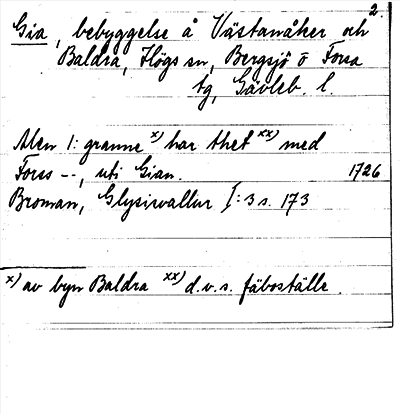 2.
Gia, bebyggelse å Västanåker och
Baldra, Högs sn, Bergsjö o Forsa
tg, Gävleb. l.
Alen 1: granne x) har thet xx) med
Forss --, uti Gian. 1726
Broman, Glysisvallur I: 3 s. 173
x) av byn Baldra xx) d.v.s. fäboställe.